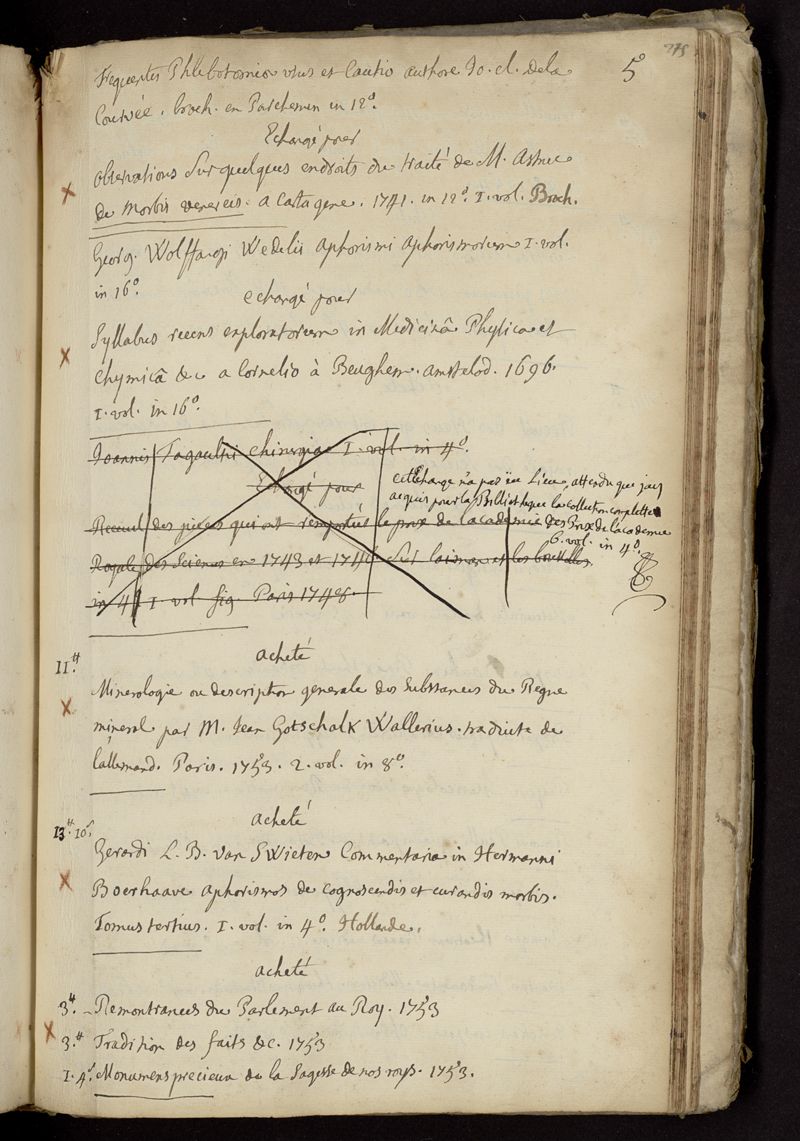 275
5°
frequentis Phlebotomiæ usus et Cautio authore Jo. cl. dela
Courvée. broch. en Parchemin in 12°.
Echargé pour
observations Sur quelques endroits du traité de M. Astruc
De Morbis venereis. a Cartagene. 1741. in 12°. I. vol. Broch.
Georg. Wolffangi Wedelii Aphorismi Aphorismorum I. vol.
in 16°.
echargé pour
Syllabus recens exploratorum in Medicinâ Physica et
Chymicâ &c a Cornelio à Beughem. amstelod. 1696.
I. vol. in 16°.
Joannis Tagaultii chirurgia I. vol. in 4°.
Echargé pour
Recueil des pieces qui ont remportées le prix de lacademie
Royale des Sciences en 1743 et 1746 Sur laiman et les boussolles
in 4° I vol fig. Paris 1748.
cet Echange n'a pas eu Lieu, attendu que j'ay
acquis pour la Bibliotheque la collection complette
des Prix de l'academie
6. vol. in 4°.
acheté
11.ᵗᵗ
Minerologie ou description generale des Substances du Regne
mineral par M. Jean Gotschalk Wallerius. traduite de
l'allemand. Paris. 1753. 2. vol. in 8°.
acheté
13.ᵗᵗ 10.ˢ
Gerardi L. B. van Swieten Commentaria in Hermanni
Boerhaave aphorismos de cognoscendis et curandis morbis.
Tomus tertius. I. vol. in 4°. Hollande.
acheté
3.ᵗᵗ - Remontrances du Parlement au Roy. 1753
3.ᵗᵗ Tradition des faits &c. 1753
I. 4ˢ. Monumens precieux de la Sagesse de nos roys. 1753.